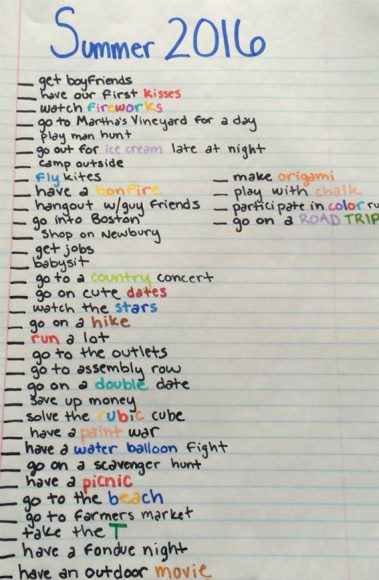 Summer 2016
get boyfriends
have our first kisses
watch fireworks
go to Martha's Vineyard for a day
play man hunt
go out for ice cream late at night
camp outside
fly kites
have a bonfire
hangout w/guy friends
go into Boston
shop on Newbury
get jobs
babysit
go to a country concert
go on cute dates
watch the stars
go on a hike
run a lot
go to the outlets
go to assembly row
go on a double date
save up money
solve the rubic cube
have a paint war
have a water balloon fight
go on a scavenger hunt
have a picnic
go to the beach
go to farmers market
take the T
have a fondue night
have an outdoor movie
make origami
play with chalk
participate in color ru
go on a ROAD TRIP